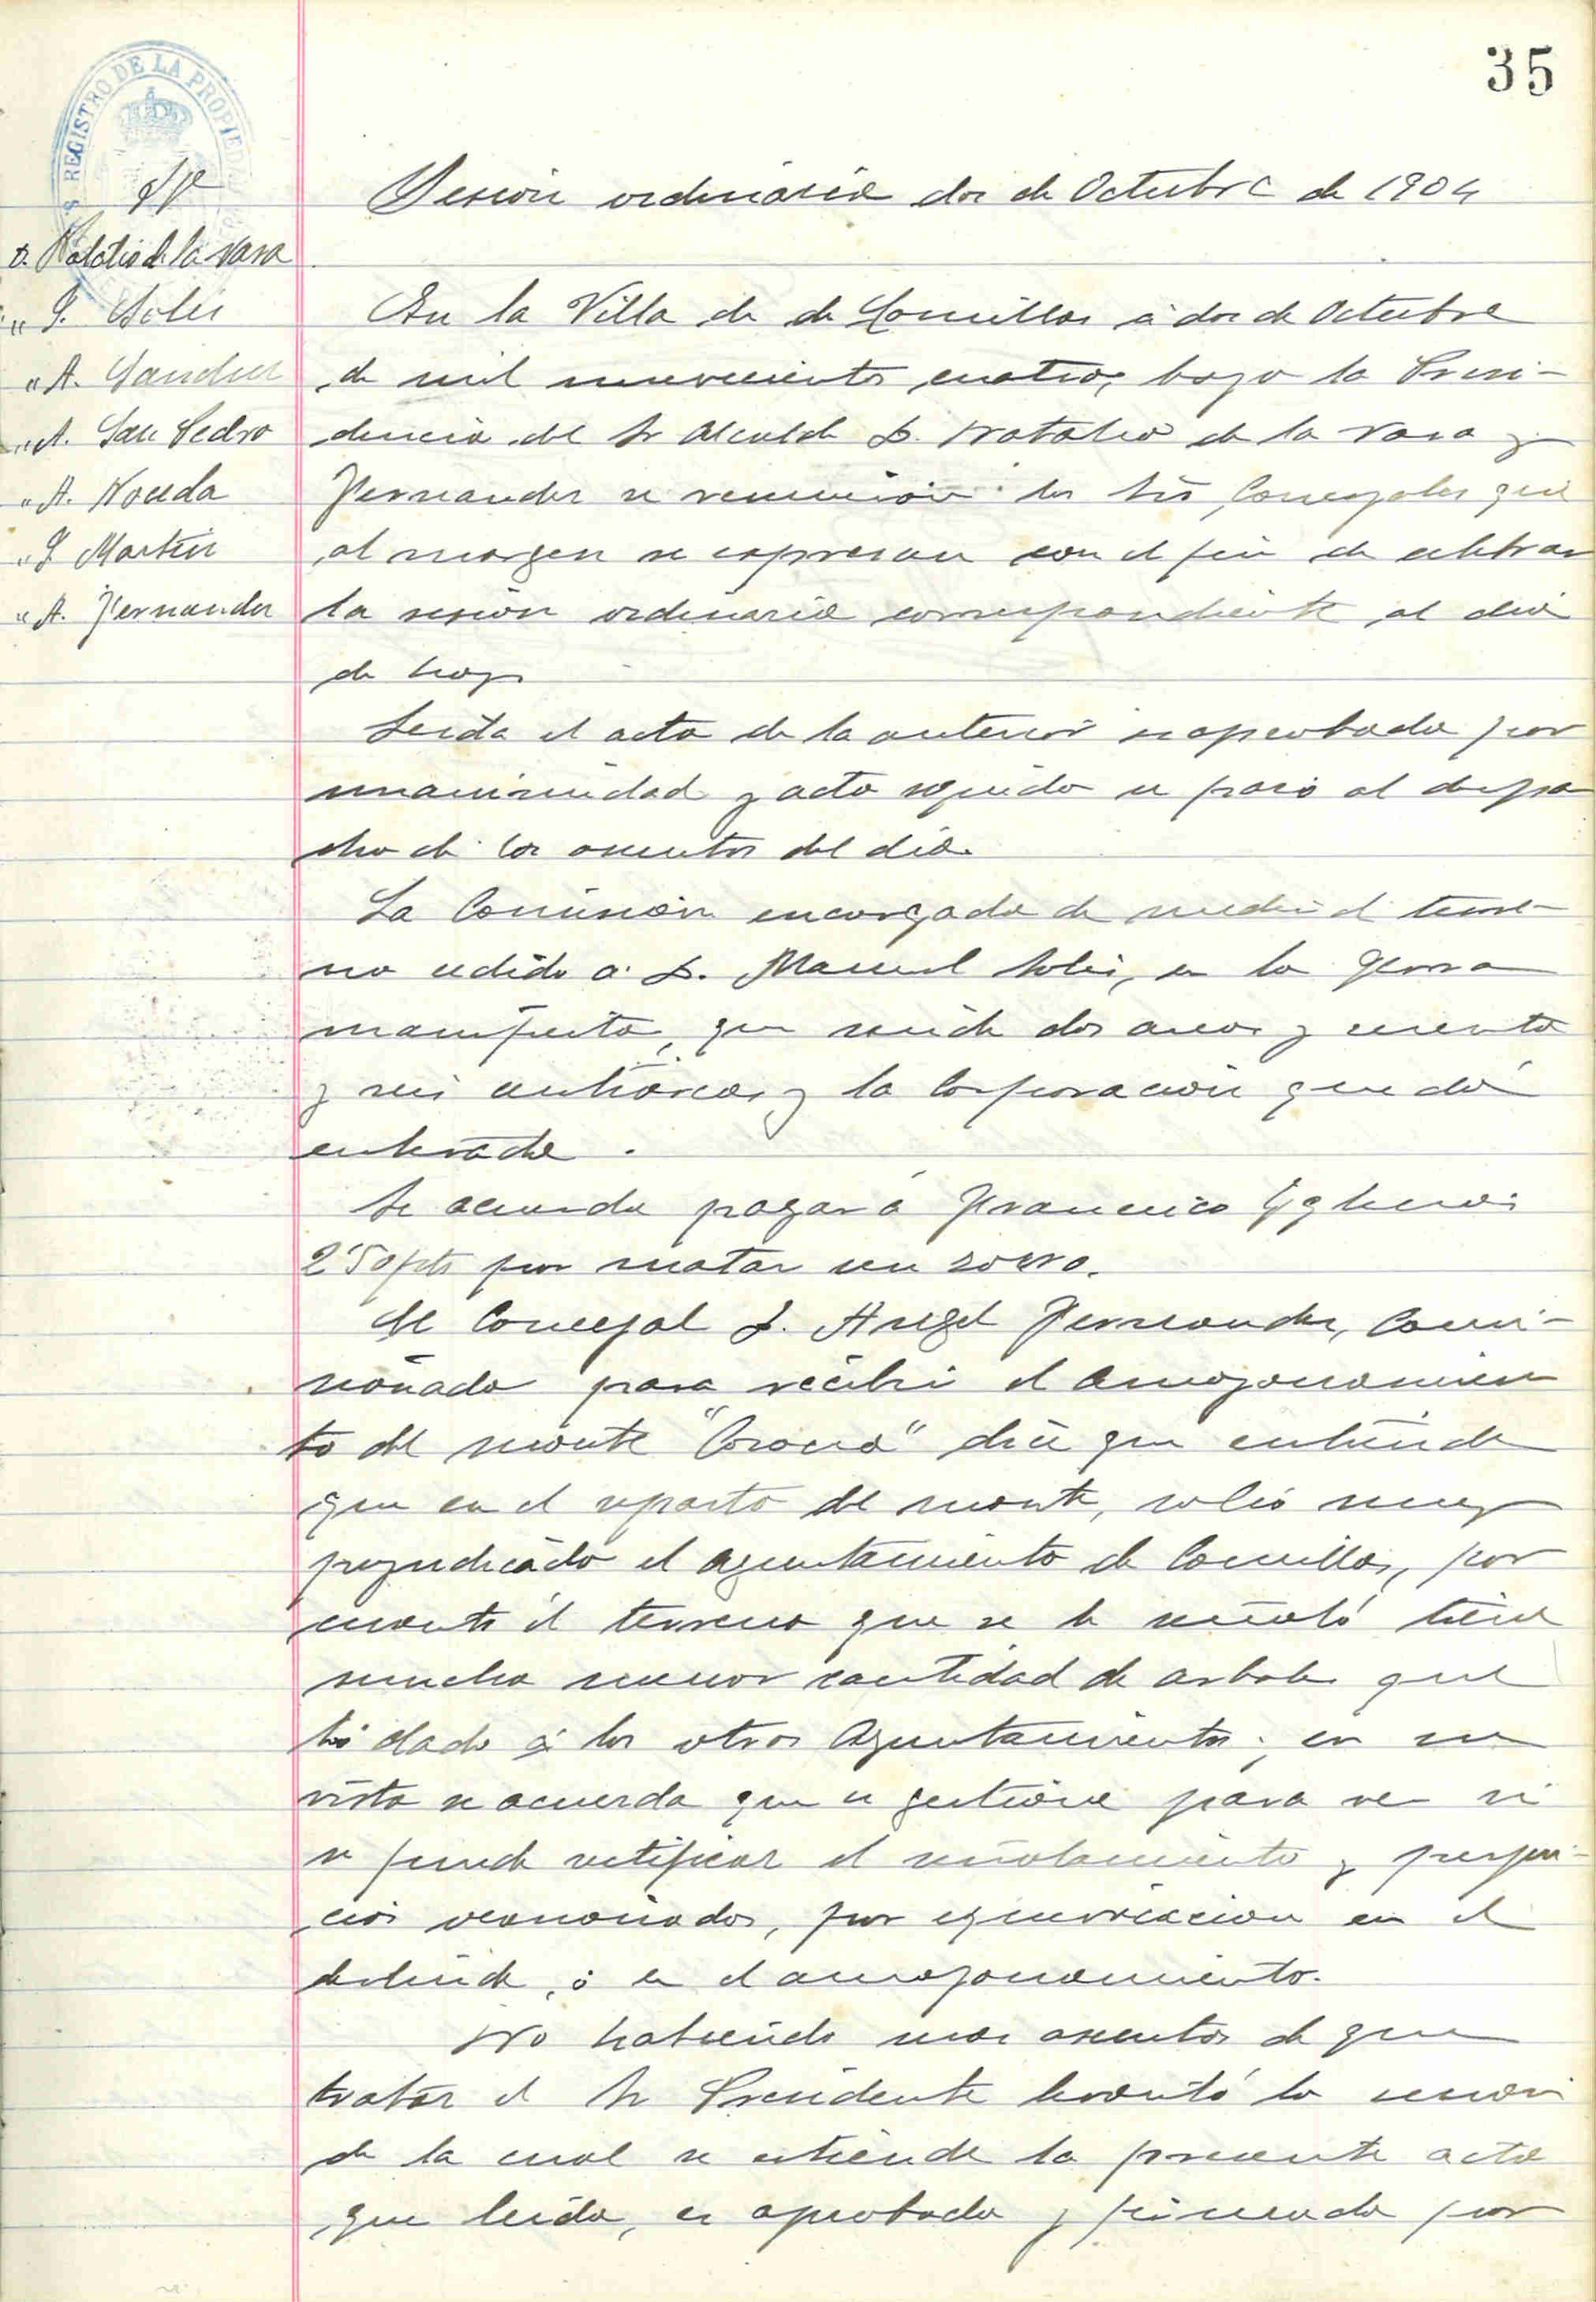 35
REGISTRO DE LA PROPIED
Sesión ordinaria dos de Octubre de 1904
D. Natalio de la Vara
" J. Solis
" A. Sanchez
" A. San Pedro
" A. Noceda
" J. Martin
" A. Fernandez
En la Villa de de Comillas á dos de Octubre
de mil novecientos cuatro, bajo la Presi-
dencia del Sr Alcalde D. Natalio de la Vara y
Fernandez se reunieron los Srs Concejales que
al margen se expresan con el fin de celebrar
la sesión ordinaria correspondiente al dia
de hoy
Leida el acta de la anterior es aprobada por
unanimidad y acto seguido se pasó al despa
cho de los asuntos del dia.
La Comisión encargada de medir el terre-
no cedido a D. Manuel Solis, en la
manifiesta, que mide dos areas y cuenta
y seis centiareas y la Corporación quedó
enterada.
Se acuerda pagar á Francisco Yglesias
2'50 pts por matar un zorro.
El Concejal D. Angel Fernandez, Comi-
sionado para recibir el amojonamien
to del monte "Corona" dice que entiende
que en el reparto del monte, salió muy
perjudicado el ayuntamiento de Comillas, por
cuanto el terreno que se le señaló tiene
mucha menor cantidad de arboles que
los dado á los otros Ayuntamientos; en su
vista se acuerda que se gestione para ver si
se puede retificar el señalamiento y perjui-
cios ocasionados, por equivocacion en el
deslinde, ó en el amojonamiento.
No habiendo mas asuntos de que
tratar el Sr Presidente levantó la sesion
de la cual se extiende la presente acta
que leida, es aprobada y firmada por